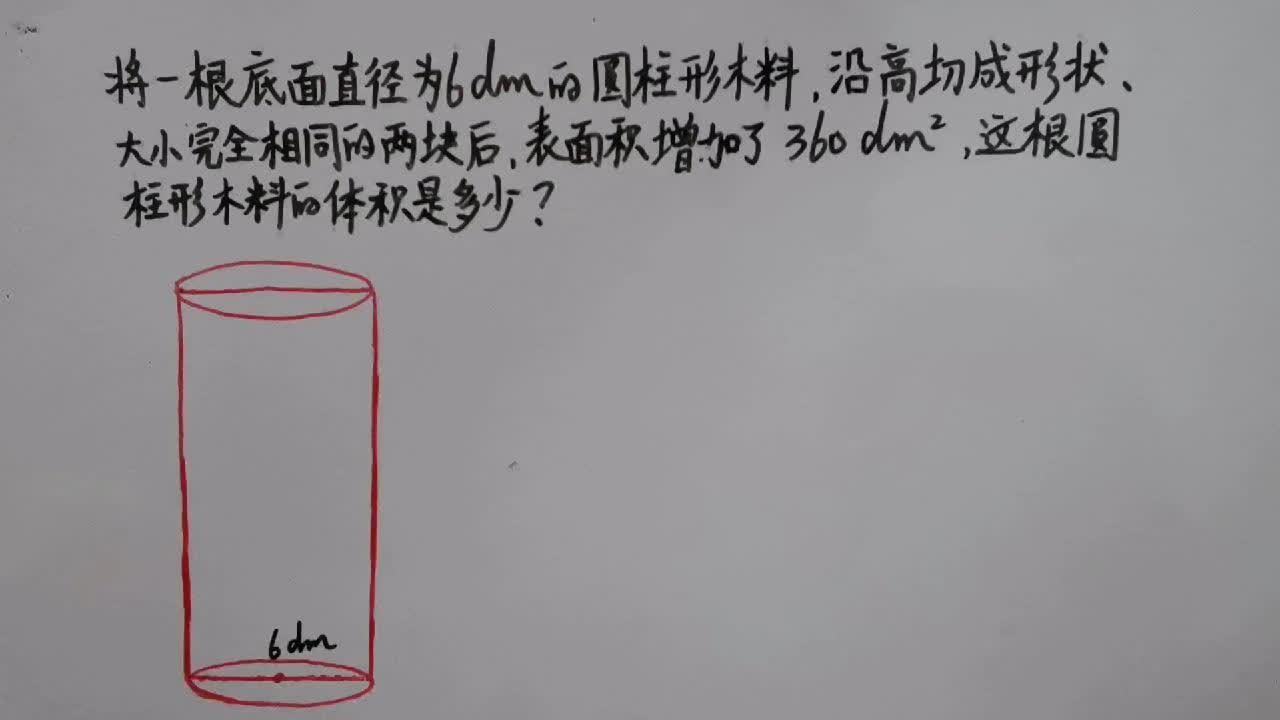 将一根底面直径为6dm的圆柱形木料,沿高切成形状、
大小完全相同的两块后,表面积增加了360dm²,这根圆
柱形木料的体积是多少?
6dm